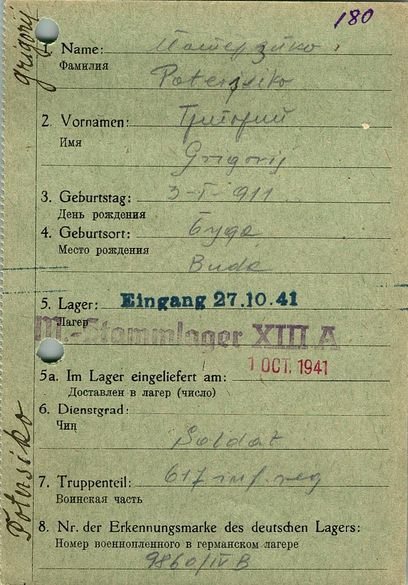 180
1. Name:
Фамилия
2. Vornamen:
Григорий
Имя
Grigorij
3. Geburtstag: 3-I-911
День рождения
4. Geburtsort: Буда
Место рождения
Buda
5. Lager: Eingang 27.10.41
Лагерь
M.-Stammlager XIII A
1 OCT. 1941
5a. Im Lager eingeliefert am:
Доставлен в лагер (число)
6. Dienstgrad:
Чин
Soldat
7. Truppenteil: 617 inf. reg
Воинская часть
8. Nr. der Erkennungsmarke des deutschen Lagers:
Номер военнопленного в германском лагере
9860/IV B
grigorij
Potersiko